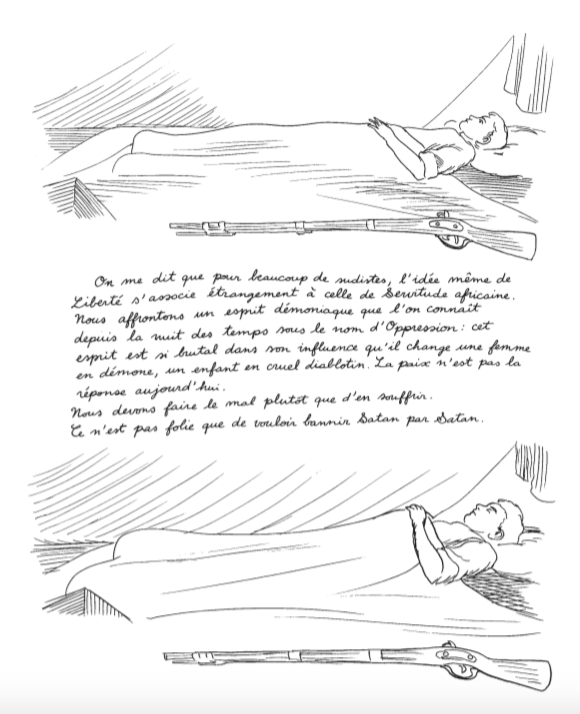 On me dit que pour beaucoup de sudistes, l'idée même de
Liberté s'associe étrangement à celle de Servitude africaine.
Nous affrontons un esprit démoniaque que l'on connaît
depuis la nuit des temps sous le nom d'Oppression : cet
esprit est si brutal dans son influence qu'il change une femme
en démone, un enfant en cruel diablotin. La paix n'est pas la
réponse aujourd'hui.
Nous devons faire le mal plutôt que d'en souffrir.
Ce n'est pas folie que de vouloir bannir Satan par Satan.